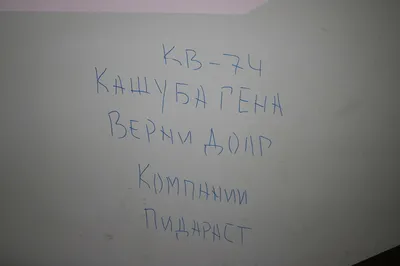 КВ-74
КАШУБА ГЕНА
ВЕРНИ ДОЛГ
КОМПАНИИ
ПИДАРАСТ